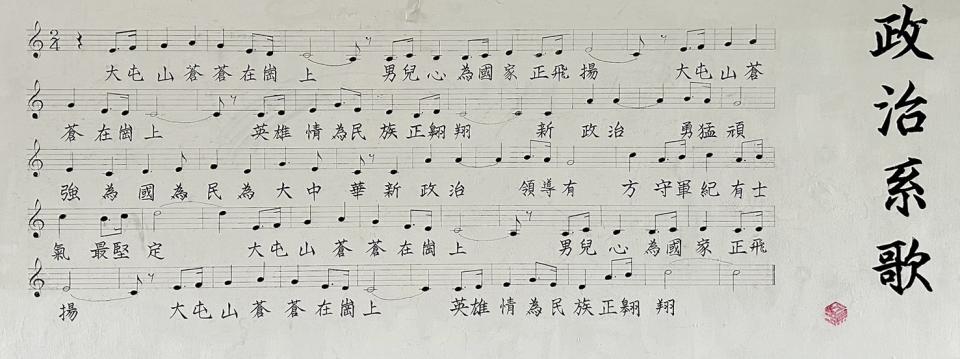 政治系歌
大屯山蒼蒼在崗上 男兒心為國家正飛揚 大屯山蒼
蒼在崗上 英雄情為民族正翱翔 新政治 勇猛頑
強為國為民為大中華新政治 領導有方守軍紀有士
氣最堅定 大屯山蒼蒼在崗上 男兒心為國家正飛
揚 大屯山蒼蒼在崗上 英雄情為民族正翱翔